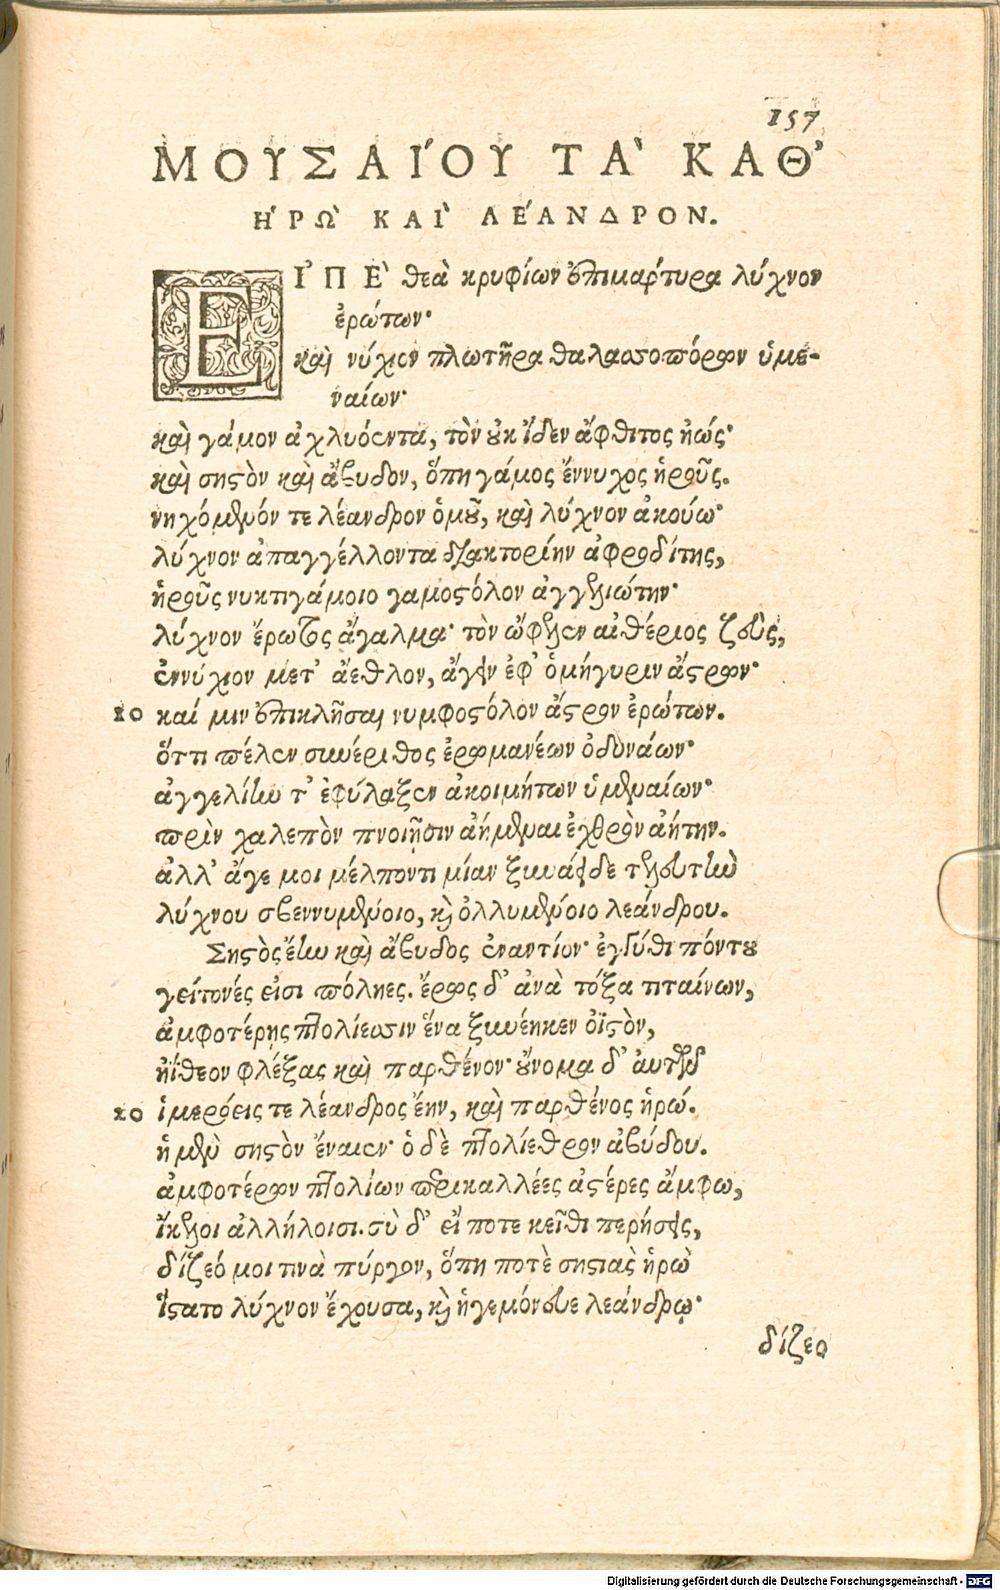 157
ΜΟΥΣΑΊΟΥ ΤᾺ ΚΑΘ᾽
ἩΡΩ ΚΑῚ ΛΈΑΝΔΡΟΝ.
ΕἸΠῈ θεὰ κρυφίων ἐπιμάρτυρα λύχνον
ἐρώτων·
καὶ νύχιον πλωτῆρα θαλασσοπόρων ὑμε-
ναίων·
καὶ γάμον ἀχλυόεντα, τὸν οὐκ ἴδεν ἄφθιτος ἠώς·
καὶ σηστὸν καὶ ἄβυδον, ὅπη γάμος ἔννυχος ἡροῦς.
νηχόμενόν τε λέανδρον ὁμοῦ, καὶ λύχνον ἀκούω·
λύχνον ἀπαγγέλλοντα διακτορίην ἀφροδίτης,
ἡροῦς νυκτιγάμοιο γαμοστόλον ἀγγελιώτην·
λύχνον ἔρωτος ἄγαλμα· τὸν ὤφελεν αἰθέριος ζεὺς,
ἐννύχιον μετ᾽ ἄεθλον, ἄγειν ἐφ᾽ ὁμήγυριν ἄστρων·
10 καί μιν ἐπικλῆσαι νυμφοστόλον ἄστρον ἐρώτων.
ὅττι πέλεν συνέριθος ἐρωμανέων ὀδυνάων·
ἀγγελίην τ᾽ ἐφύλαξεν ἀκοιμήτων ὑμεναίων·
πρὶν χαλεπὸν πνοιῇσιν ἀήμεναι ἐχθρὸν ἀήτην.
ἀλλ᾽ ἄγε μοι μέλποντι μίαν ξυνάειδε τελευτὴν
λύχνου σβεννυμένοιο, καὶ ὀλλυμένοιο λεάνδρου.
Σηστὸς ἔην καὶ ἄβυδος ἐναντίον· ἐγγύθι πόντου
γείτονές εἰσι πόληες. ἔρως δ᾽ ἀνὰ τόξα τιταίνων,
ἀμφοτέρῃς πτολίεσσιν ἕνα ξυνέηκεν ὀϊστὸν,
ἠΐθεον φλέξας καὶ παρθένον· οὔνομα δ᾽ αὐτῶν
20 ἱμερόεις τε λέανδρος ἔην, καὶ παρθένος ἡρώ.
ἡ μὲν σηστὸν ἔναιεν· ὁ δὲ πτολίεθρον ἀβύδου.
ἀμφοτέρων πτολίων περικαλλέες ἀστέρες ἄμφω,
ἴκελοι ἀλλήλοισι. σὺ δ᾽ εἴ ποτε κεῖθι περήσεις,
δίζεό μοι τινὰ πύργον, ὅπη ποτὲ σηστιὰς ἡρὼ
ἵστατο λύχνον ἔχουσα, καὶ ἡγεμόνευε λεάνδρῳ·
δίζεο
Digitalisierung gefördert durch die Deutsche Forschungsgemeinschaft - DFG